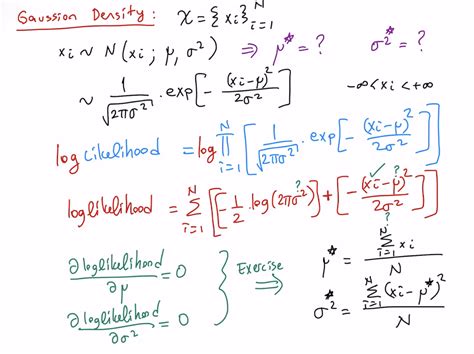 Gaussian Density: X = {xi}ᵢ₌₁ᴺ
xi ~ N(xi; μ, σ²) ⇒ μ* = ? σ²* = ?
~ 1/√(2πσ²) · exp[-(xi-μ)²/2σ²] -∞<xi<+∞
log cikelihood = log ∏ᵢ₌₁ᴺ [1/√(2πσ²) · exp[-(xi-μ)²/2σ²]
loglikelihood = ∑ᵢ₌₁ᴺ [-1/2 · log(2πσ²)] + [-(xi-μ)²/2σ²] ? ✓ ? ?
∂loglikelihood/∂μ = 0
∂loglikelihood/∂σ² = 0
} Exercise ⇒
μ* = ∑ᵢ₌₁ᴺ xi / N
σ²* = ∑ᵢ₌₁ᴺ (xi-μ*)² / N